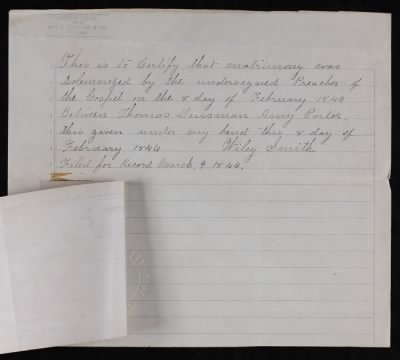 This is to Certify that matrimony was
Solemnized by the undersigned Preacher of
the Gospel on the 8 day of February 1846
Between Thomas Dunsman Amy Porter,
this given under my hand this 8 day of
February 1846 Wiley Smith
Filed for Record March 9 1846.